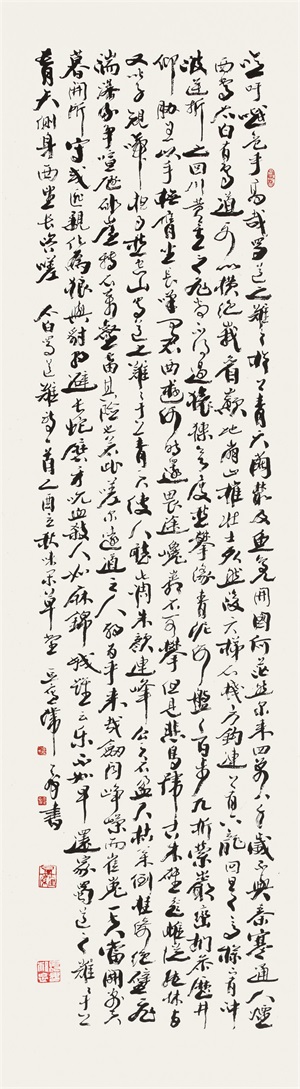 噫吁嚱危乎高哉蜀道之難難於上青天蠶叢及魚鳧開國何茫然爾來四萬八千歲不與秦塞通人煙
西當太白有鳥道可以橫絕峨眉巔地崩山摧壯士死然後天梯石棧方鉤連上有六龍回日之高標下有沖
波逆折之回川黃鶴之飛尚不得過猿猱欲度愁攀緣青泥何盤盤百步九折縈巖巒捫參歷井
仰脅息以手撫膺坐長嘆問君西遊何時還畏途巉巖不可攀但見悲鳥號古木雄飛雌從繞林間
又聞子規啼夜月愁空山蜀道之難難于上青天使人聽此凋朱顏連峰去天不盈尺枯松倒挂倚絕壁飛
湍瀑流爭喧豗砯崖轉石萬壑雷其險也若此嗟爾遠道之人胡為乎來哉劍閣崢嶸而崔嵬一夫當關萬夫
莫開所守或匪親化為狼與豺避長蛇磨牙吮血殺人如麻錦城雖云樂不如早還家蜀道之難難于上
青天側身西望長咨嗟 太白蜀道難詩一首乙酉立秋草堂 書